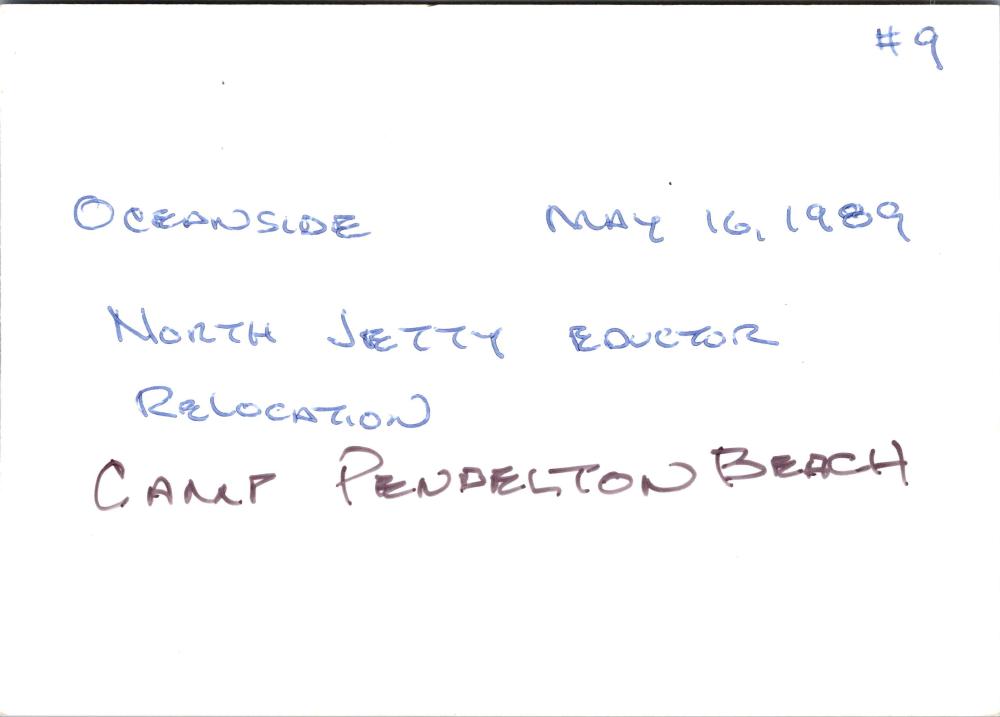 #9
OCEANSIDE MAY 16, 1989
NORTH JETTY EDUCTOR
RELOCATION
CAMP PENDELTON BEACH